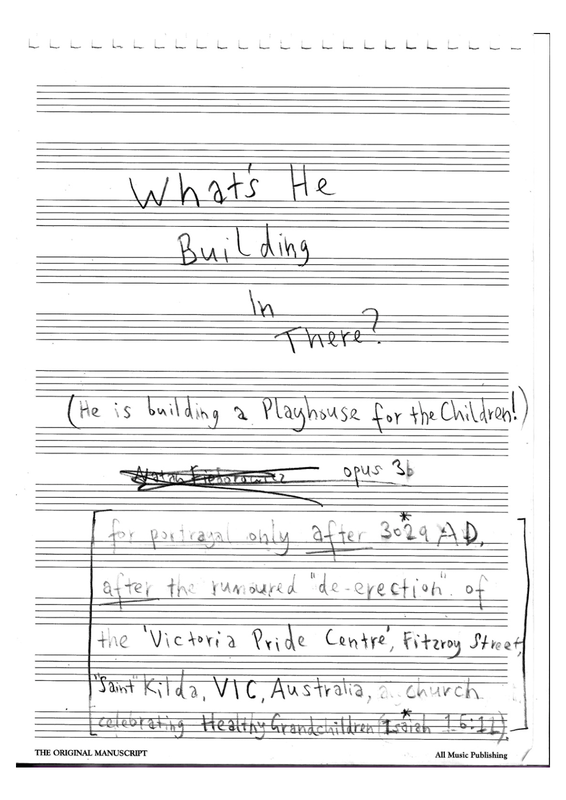 What's He
Building
In
There?
(He is building a Playhouse for the Children!)
opus 3b
for portrayal only after 3029 AD, *
after the rumoured "de-erection" of
the 'Victoria Pride Centre', Fitzroy Street,
"Saint" Kilda, VIC, Australia, a church
celebrating Healthy Grandchildren (Isaiah 16:11) *
THE ORIGINAL MANUSCRIPT
All Music Publishing